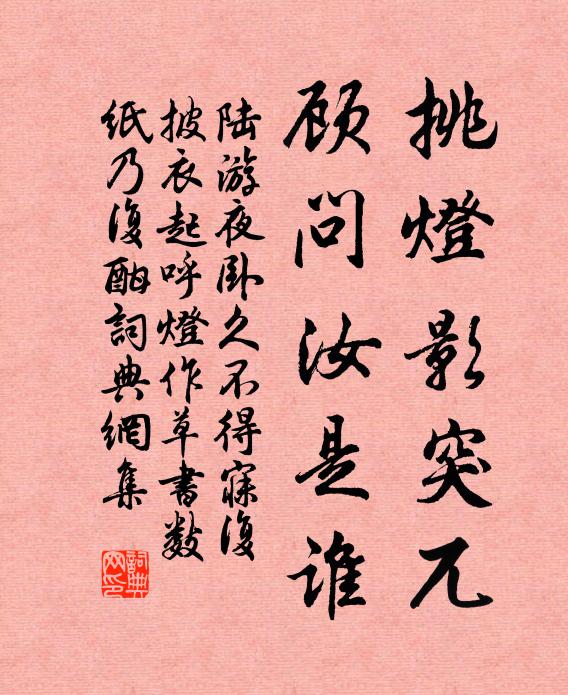 挑燈影突兀
顾問汝是誰
陆游夜卧久不得寐復
披衣起呼燈作草書数
纸乃復酣詞典網集
詞典
网印